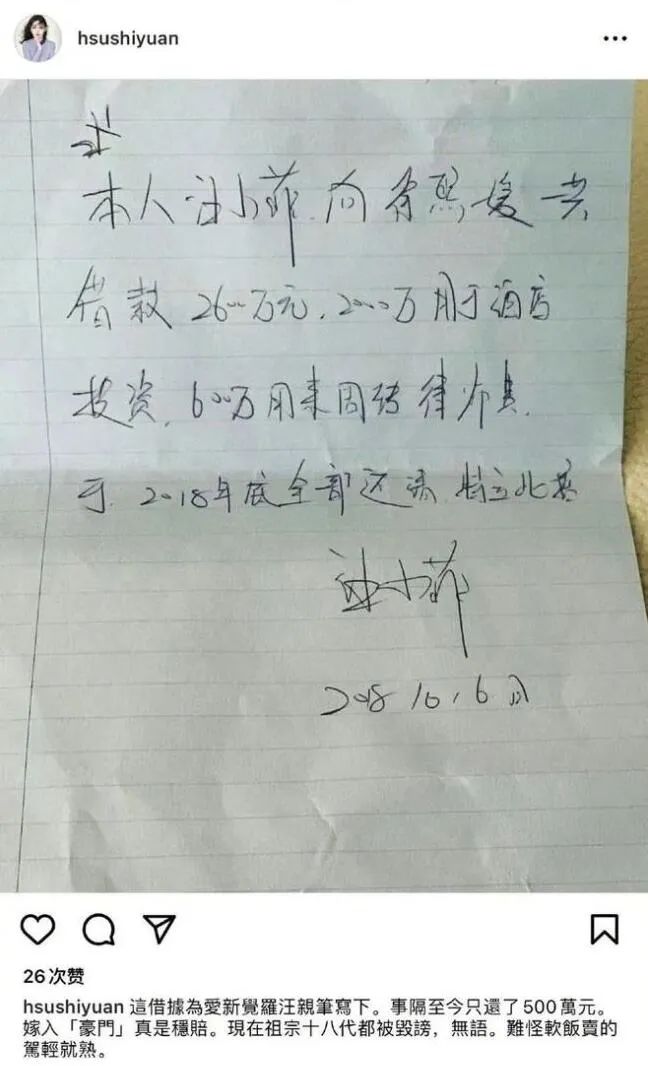 hsushiyuan
本人汪小菲向徐熙媛共
借款2600万元,2000万用于酒店
投资,600万用来周转律师费,
于2018年底全部还清,特立此据
汪小菲
2018 10,6日
26次赞
hsushiyuan 這借據為愛新覺羅汪親筆寫下。事隔至今只還了500萬元。
嫁入「豪門」真是穩賠。現在祖宗十八代都被毀謗,無語。難怪軟飯賣的
駕輕就熟。